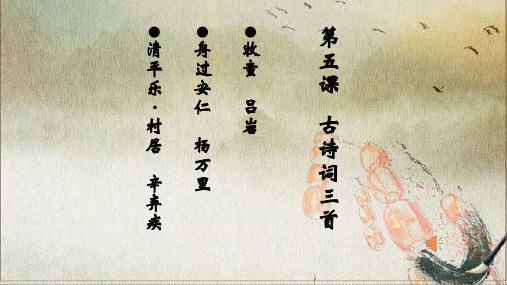 第五课 古诗词三首
●牧童 吕岩
●舟过安仁 杨万里
●清平乐·村居 辛弃疾